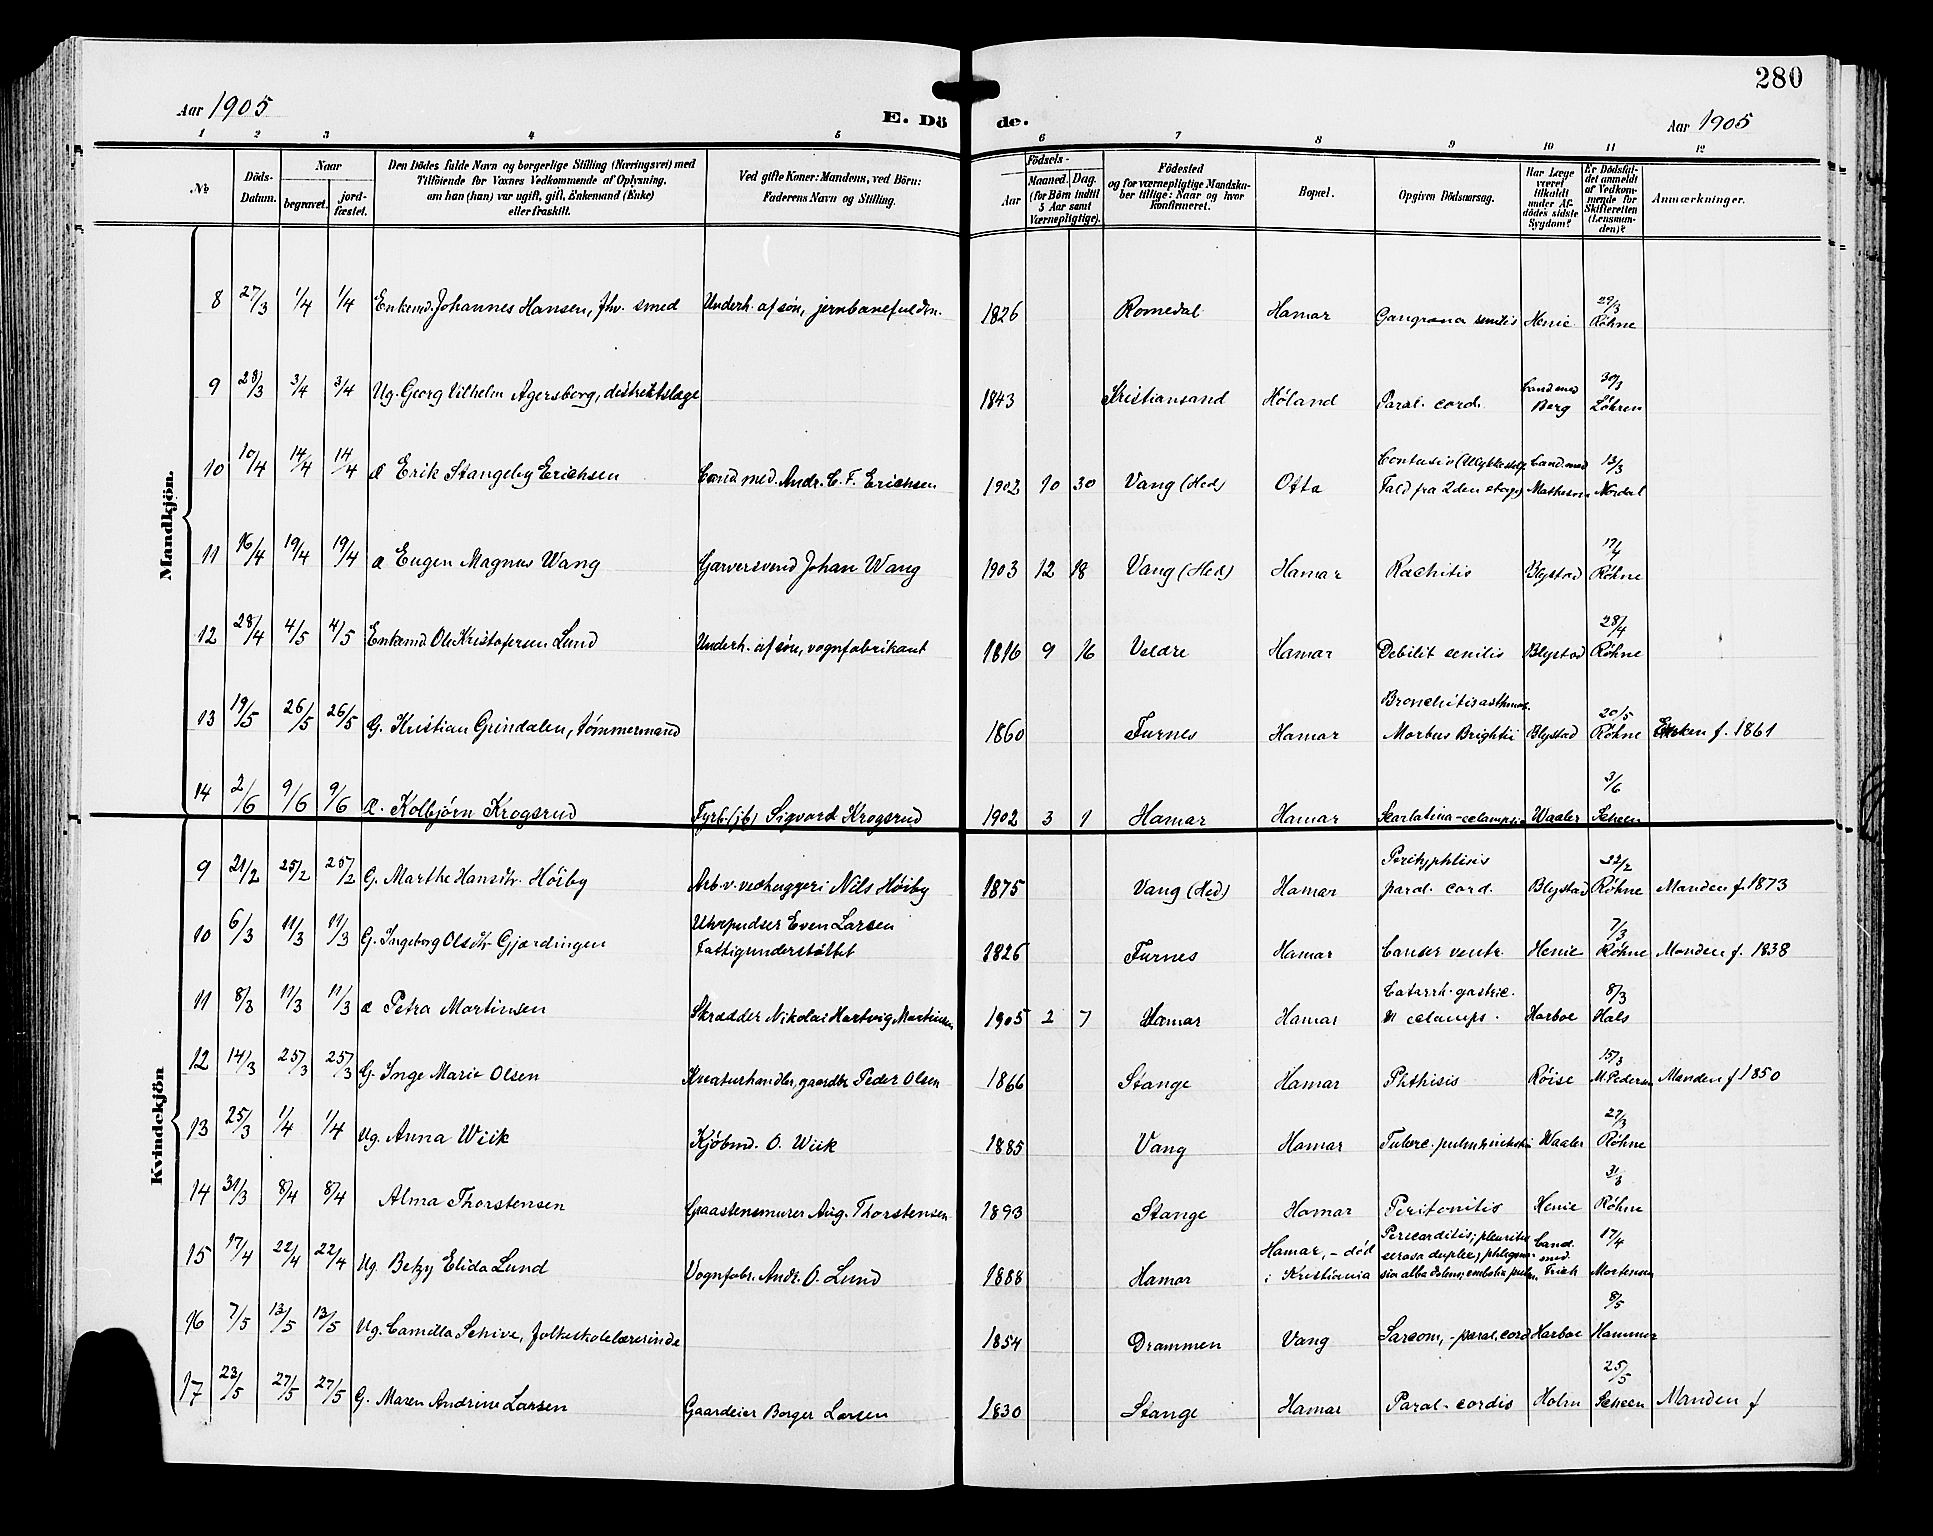 280
Aar 1905
E. Dö de.
Aar 1905
1 2 3 4 5 6 7 8 9 10 11 12
No
Döds-Datum.
Naar
begravet.
jord-fæstet.
Den Dödes fulde Navn og borgerlige Stilling (Næringsvei) med
Tilföiende for Voxnes Vedkommende af Oplysning,
om han (hun) var ugift, gift, Enkemand (Enke)
eller fraskilt.
Ved gifte Koner: Mandens, ved Börn:
Faderens Navn og Stilling.
Födsels-
Aar
Maaned. Dag.
(for Börn indtil
5 Aar samt
Værnepligtige).
Födested
og for værnepligtige Mandska-
ber tillige: Naar og hvor
konfirmeret.
Bopæl.
Opgiven Dödsaarsag.
Har Læge
været
tilkaldt
under Af-
dödes sidste
Sygdom?
Er Dödsfal-
det anmeldt
af Vedkom-
mende for
Skifteretten
(Lensman-
den)?
Anmærkninger.
Mandkjön.
8 27/3 1/4 1/4 Enkemd. Johannes Hansen, fhv. smed Underh. af søn, jernbanefuldm. 1826 Romedal Hamar Gangræna senilis Henie 29/3 Röhne
9 28/3 3/4 3/4 Ug. Georg Vilhelm Agersborg, distriktslæge 1843 Kristiansand Höland Paral. cord. Cand med Berg 30/3 Löhren
10 10/4 14/4 14/4 æ Erik Stangeby Erichsen Cand med. Andr. C. F. Erichsen 1902 10 30 Vang (Hed) Otta Contusio (Ulykkestilf. Fald fra 2den etage) Cand. med Matheson 13/3 Nordal
11 16/4 19/4 19/4 æ Eugen Magnus Wang Garversvend Johan Wang 1903 12 18 Vang (Hed) Hamar Rachitis Blystad 17/4 Röhne
12 28/4 4/5 4/5 Enkemd Ole Kristofersen Lund Underh. af søn, vognfabrikant 1816 9 16 Veldre Hamar Debilit senilis Blystad 28/4 Röhne
13 19/5 26/5 26/5 G. Kristian Grindalen, tömmermand 1860 Furnes Hamar Bronchitis asthmat. Morbus Brightii Blystad 20/5 Röhne Enken f. 1861
14 2/6 9/6 9/6 Æ. Kolbjörn Krogsrud Fyrb. (jb) Sigvard Krogsrud 1902 3 1 Hamar Hamar Scarlatina-eclampsie Waaler 3/6 Scheen
Kvindekjön
9 21/2 25/2 25/2 G. Marthe Hansdtr. Höiby Arb. v. vedhuggeri Nils Höiby 1875 Vang (Hed) Hamar Perityphlitis paral. cord. Blystad 22/2 Röhne Manden f. 1873
10 6/3 11/3 11/3 G. Ingeborg Olsdtr Gjærdingen Uhrpudser Even Larsen Fattigunderstöttet 1826 Furnes Hamar Cancer ventr. Henie 7/3 Röhne Manden f. 1838
11 8/3 11/3 11/3 æ Petra Martinsen Skrædder Nikolai Hartvig Martinsen 1905 2 7 Hamar Hamar Catarrh. gastric. eclamps. Harboe 8/3 Hals
12 14/3 25/3 25/3 G. Inge Marie Olsen Kreaturhandler, gaardbr. Peder Olsen 1866 Stange Hamar Phthisis Röise 15/3 M. Pedersen Manden f 1850
13 25/3 1/4 1/4 Ug. Anna Wiik Kjöbmd. O. Wiik 1885 Vang Hamar Tuberc. pulm. Waaler 27/3 Röhne
14 31/3 8/4 8/4 Alma Thorstensen Graastensmurer Aug. Thorstensen 1893 Stange Hamar Peritonitis Henie 31/3 Röhne
15 17/4 22/4 22/4 Ug. Betzy Elida Lund Vognfabr. Andr. O. Lund 1888 Hamar Hamar, - död i Kristiania Pericarditis; pleuritis serosa duplex; phlegmasia alba dolens; embolia pulm. Cand. med. 17/4 Mortensen
16 7/5 13/5 13/5 Ug. Camilla Schive, folkeskolelærerinde 1854 Drammen Vang Sarcom, - paral. cord Harboe 8/5 Hammer
17 22/5 27/5 27/5 G. Maren Andrine Larsen Gaardeier Borger Larsen 1830 Stange Hamar Paral-cordis Holm 25/5 Scheen Manden f